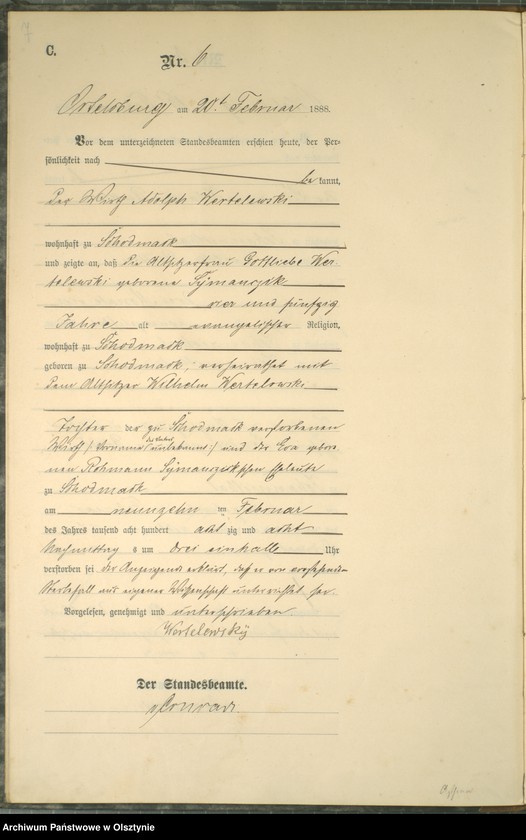 C.
Nr. 6
Ortelsburg am 20t Februar 1888.
Vor dem unterzeichneten Standesbeamten erschien heute, der Per-
sönlichkeit nach
be kannt,
der Wirth Adolph Wertelewski
wohnhaft zu Schodmack
und zeigte an, daß die Altsitzerfrau Gottliebe Wer-
telewski geborene Symanczik
vier und fünfzig
Jahre alt evangelischer Religion,
wohnhaft zu Schodmack
geboren zu Schodmack, verheirathet mit
dem Altsitzer Wilhelm Wertelewski
Tochter der zu Schodmack verstorbenen
Wirth (Vorname unbekannt) und der Eva gebore-
nen Rohmann Symanczikschen Eheleute
zu Schodmack
am neunzehn ten Februar
des Jahres tausend acht hundert acht zig und acht
Nachmittag s um drei einhalb Uhr
verstorben sei der Anzeigende erklärt, daß er von vorstehendem
Sterbefall aus eigener Wissenschaft unterrichtet sei.
Vorgelesen, genehmigt und unterschrieben
Wertelewsky
Der Standesbeamte.
Conrad
Archiwum Państwowe w Olsztynie